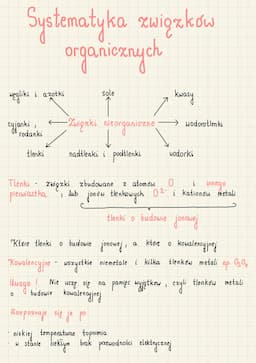 Systematyka związków
organicznych
węgliki i azotki
sole
kwasy
cyjanki,
rodanki
Związki nieorganiczne
wodorotlenki
tlenki
nadtlenki i podtlenki
wodorki
Tlenki - związki zbudowane z atomów O i innego
pierwiastka, lub jonów tlenkowych O²⁻ i kationów metali
tlenki o budowie jonowej
*Które tlenki o budowie jonowej, a które o kowalencyjnej
Kowalencyjne - wszystkie niemetale i kilka tlenków metali np.
Uwaga! Nie uczę się na pamięć wyjątków, czyli tlenków metali
o budowie kowalencyjnej
Rozpoznaje się je po
- niskiej temperaturze topnienia
- w stanie ciekłym brak przewodności elektrycznej